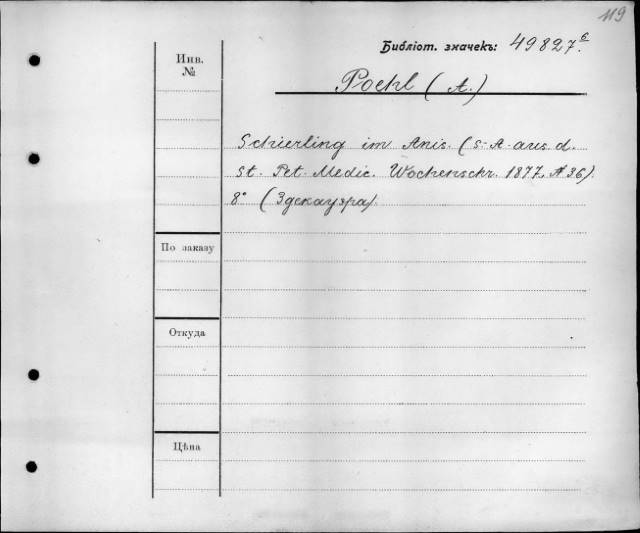 119
Библіот. значекъ: 49827б.
Инв.
№
Poehl (A.)
Schierling im Anis. (S.-A. aus d.
St. Pet. Medic. Wochenschr. 1877, № 36).
8° (Здекауэра).
По заказу
Откуда
Цѣна